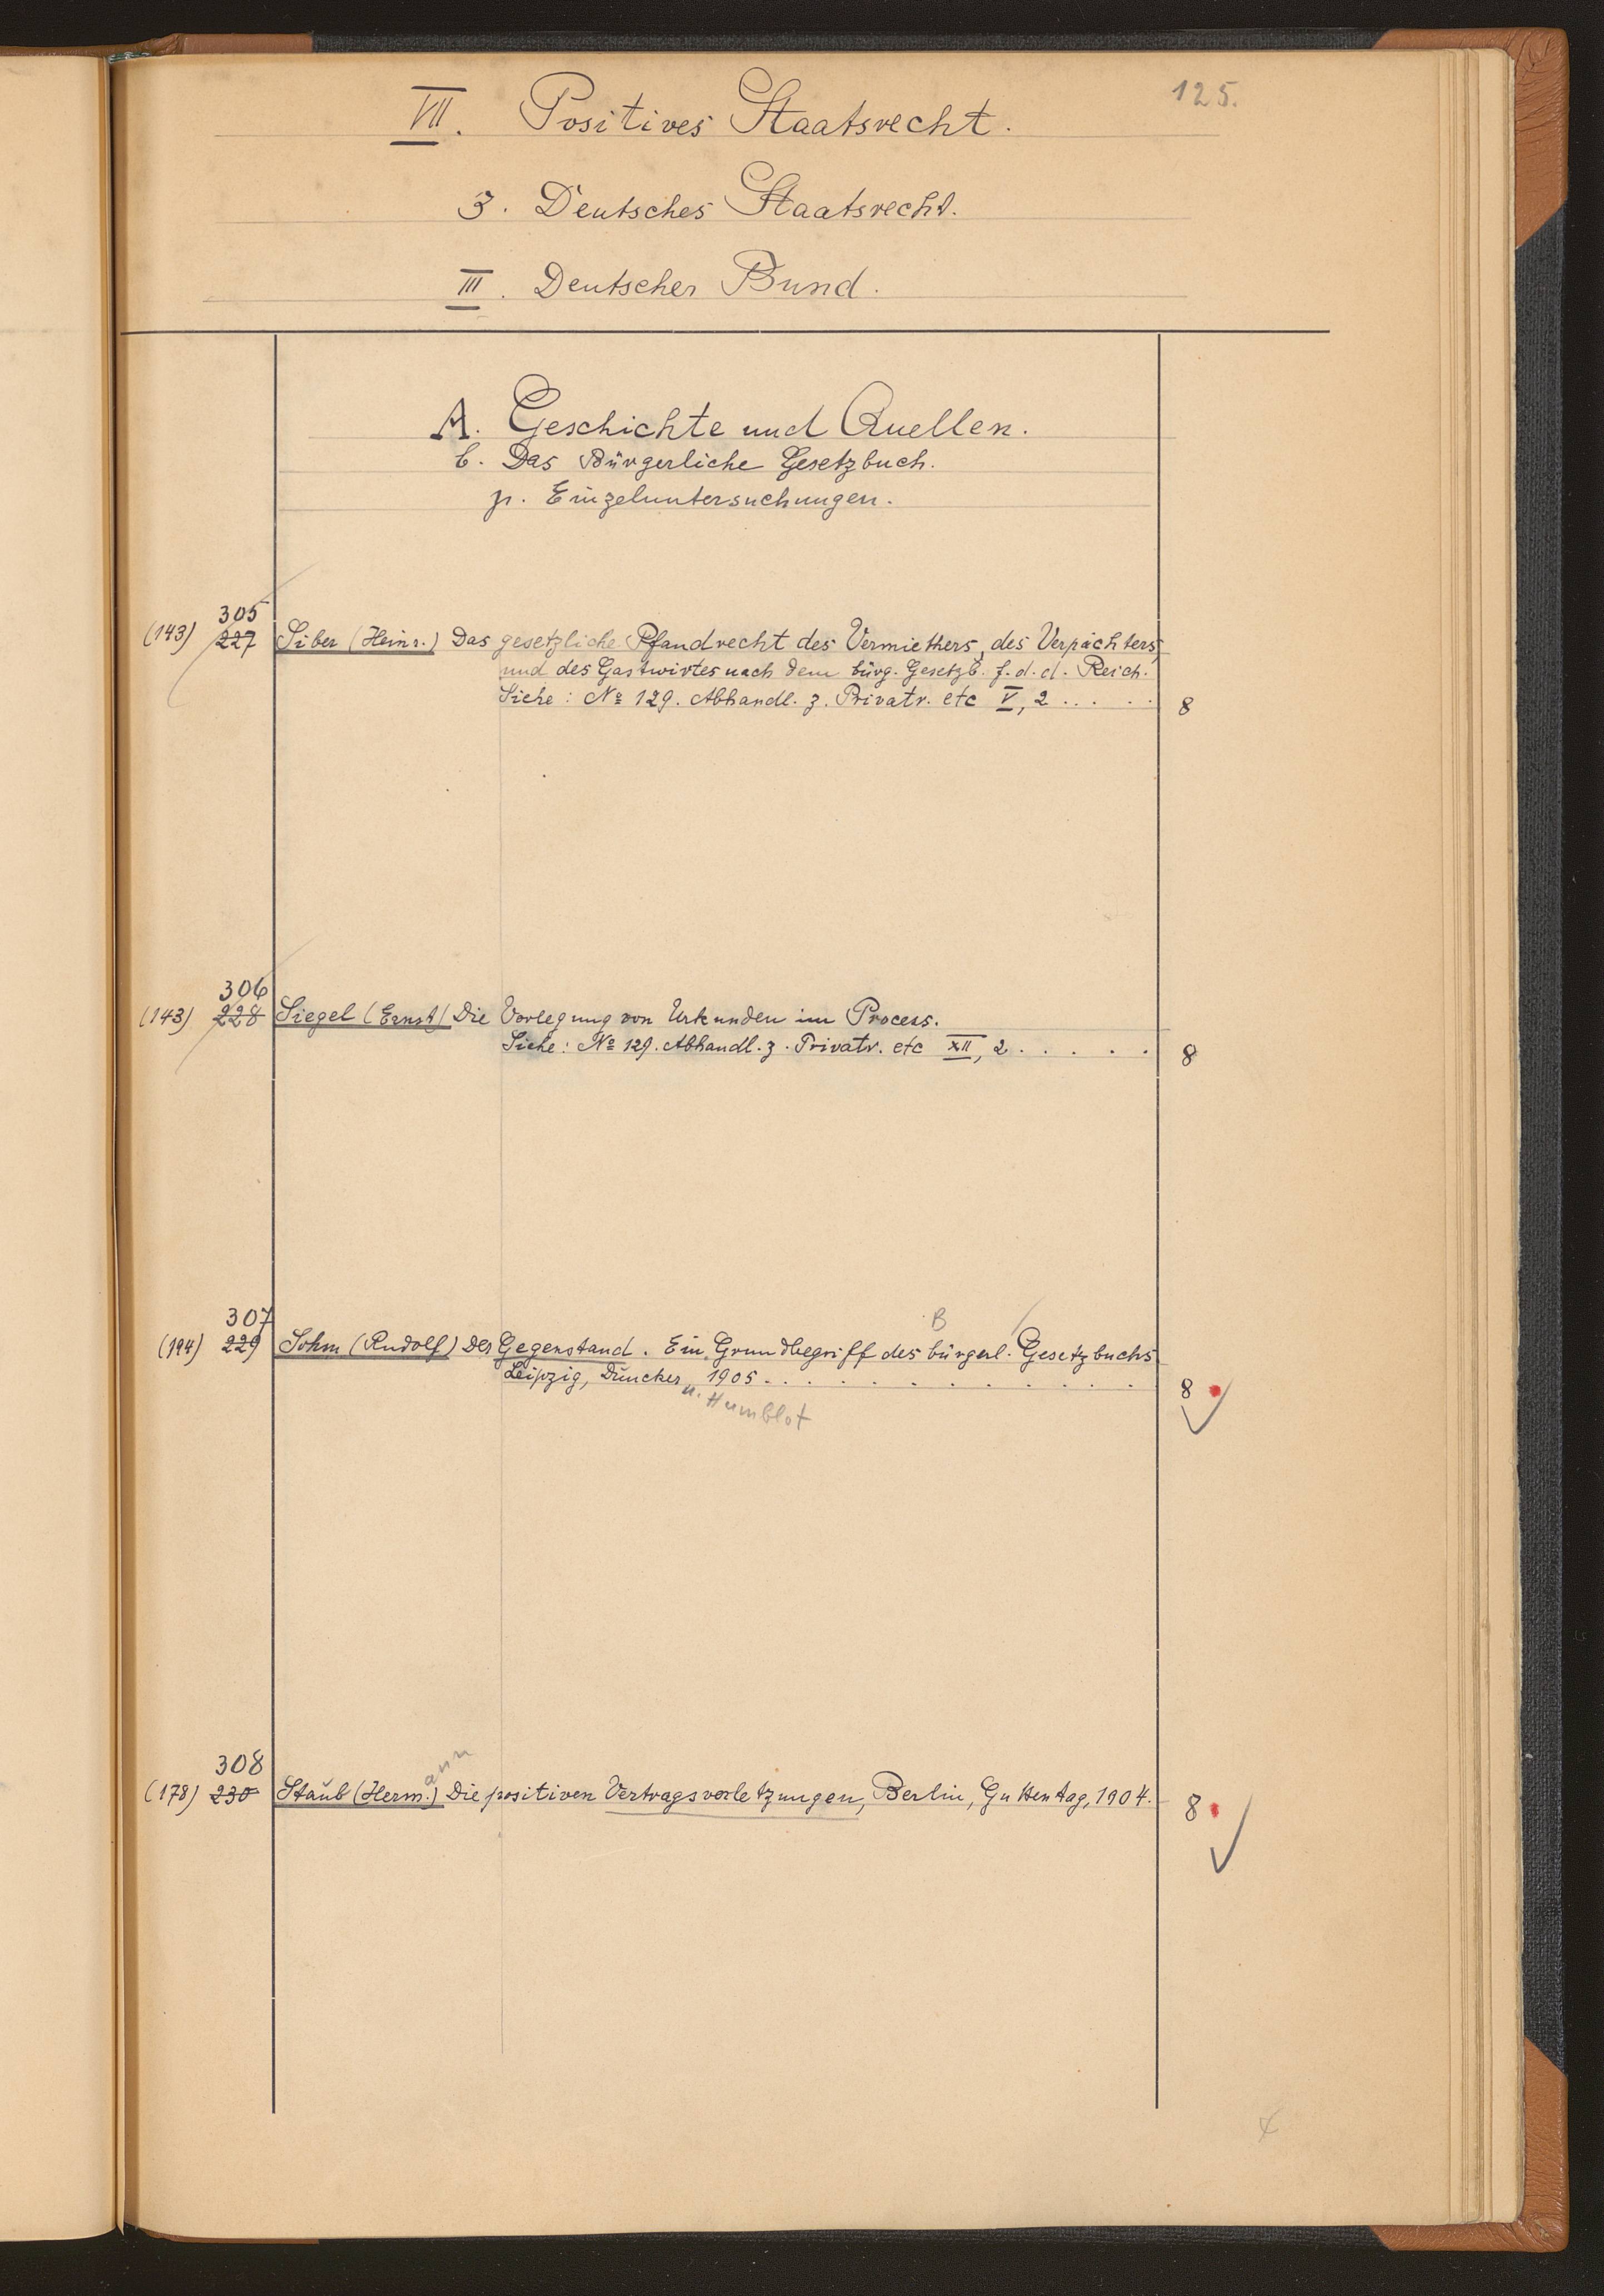 125.
VII. Positives Staatsrecht.
3. Deutsches Staatsrecht.
III. Deutscher Bund.
A. Geschichte und Quellen.
b. Das Bürgerliche Gesetzbuch.
γ. Einzeluntersuchungen.
305
(143) 227 Siber (Heinr.) Das gesetzliche Pfandrecht des Vermiethers, des Verpächters,
und des Gastwirtes nach dem bürg. Gesetzb. f. d. d. Reich.
Siehe: No 129. Abhandl. z. Privatr. etc V, 2 ..... 8
306
(143) 228 Siegel (Ernst) Die Vorlegung von Urkunden im Process.
Siehe: No 129. Abhandl. z. Privatr. etc XII, 2 ..... 8
307
B
(194) 229 Sohm (Rudolf) Der Gegenstand. Ein Grundbegriff des bürgerl. Gesetzbuchs
Leipzig, Duncker, 1905 ..... 8
u. Humblot
308
ann
(178) 230 Staub (Herm.) Die positiven Vertragsverletzungen, Berlin, Guttentag, 1904. 8